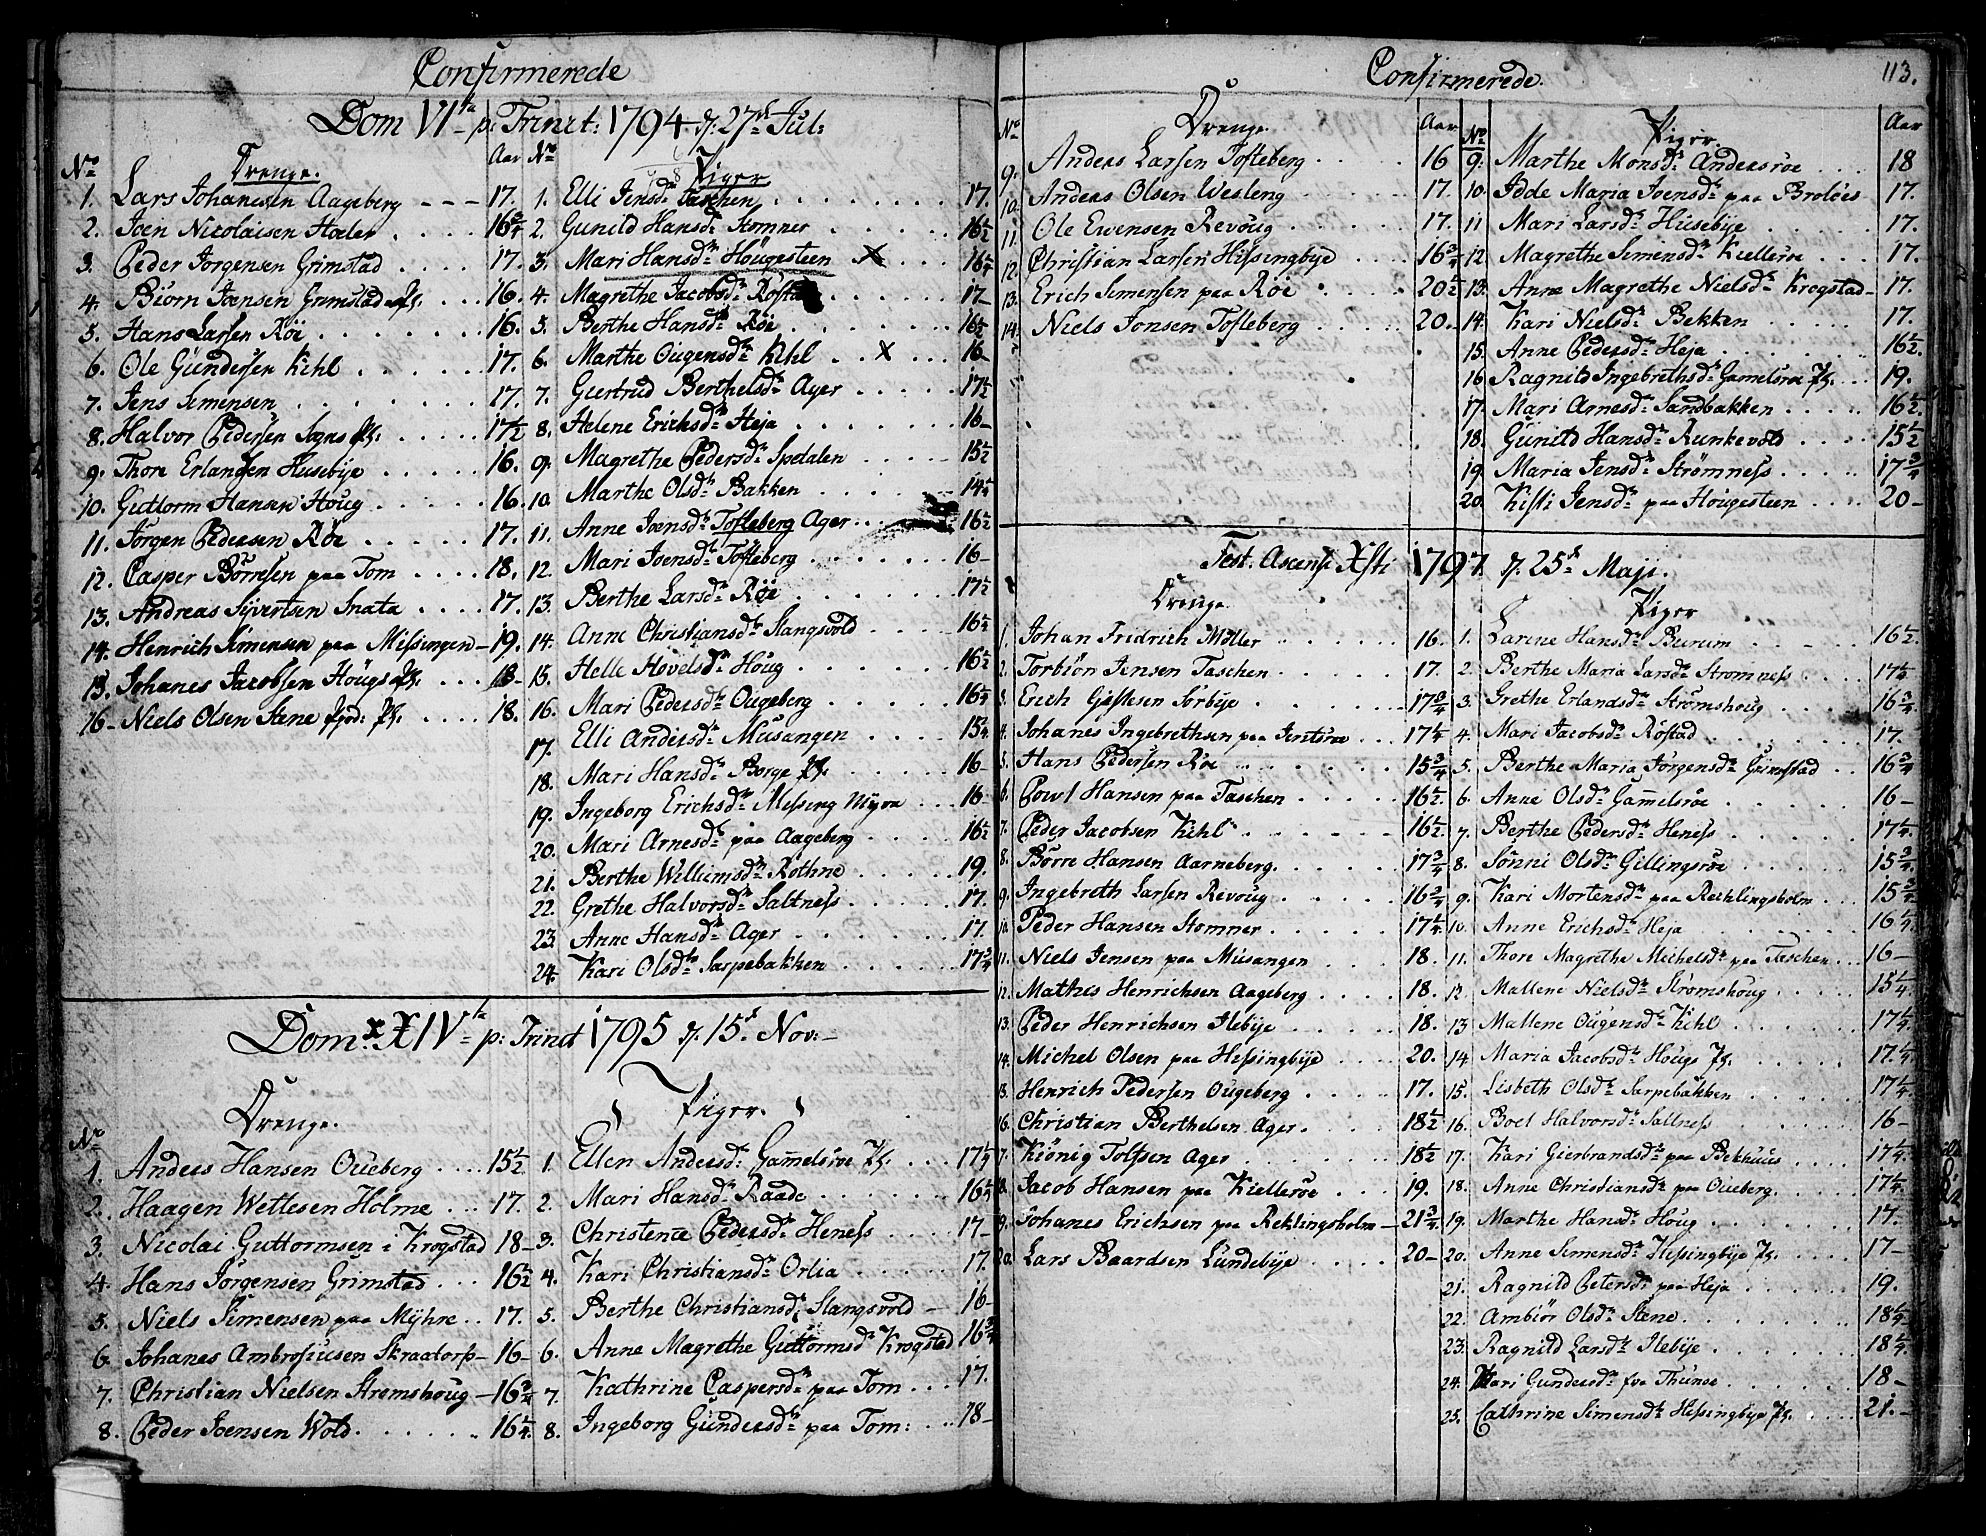 Confirmerede
Dom VI ta p: Trinit: 1794 d. 27 d Jul:
No Drenge. Aar
1. Lars Johanesen Aageberg - - - 17.
2. Joen Nicolaisen Hoeler . . . . 16 3/4
3. Peder Jorgensen Grimstad . . . . 17.
4. Biorn Joensen Grimstad Pl. . . . 16.
5. Hans Larsen Röe . . . . 16.
6. Ole Gundersen Kihl . . . . 17.
7. Jens Simensen . . . . 17.
8. Halvor Pedersen Sogns Pl. . . . . 17 1/2
9. Thore Erlandsen Husebye . . . . 16.
10. Guttorm Hansen Houg . . . . 16.
11. Jörgen Pedersen Röe . . . . 17.
12. Casper Börresen paa Tom . . . . 18.
13. Andreas Syvertsen Snata . . . . 17.
14. Henrich Simensen paa Missingen - 19.
15. Johanes Jacobsen Hougs Pl. . . . 18 -
16 - Niels Olsen Stene Pl. . . . . 18.
No Piger
1. Elli Jensd. Taschen . . . . 17.
2. Gunild Hansd. Stomner . . . . 16 1/2
3. Mari Hansd. Höugesteen X . . . 16 1/4
4. Magrethe Jacobsd. Röstad . . . . 17 -
5. Berthe Hansd. Röe . . . . 16 1/2
6. Marthe Ougensd. Kihl . . X . . . 16 -
7. Giertrud Berthelsd. Ager . . . . 17 1/2
8. Helene Erichsd. Heja . . . . 16 -
9. Magrethe Pedersd. Spedalen . . . . 15 1/2
10. Marthe Olsd. Bakken . . . . 14 3/4
11. Anne Joensd. Tofteberg Ager . . . 16 1/2
12. Mari Joensd. Tofteberg . . . . 16 -
13. Berthe Larsd. Röe . . . . 17 1/2
14. Anne Christiansd. Slangsvold . . . . 16 1/4
15. Helle Hovelsd. Houg . . . . 16 1/2
16. Mari Pedersd. Ougeberg . . . . 16 1/4
17. Elli Andersd. Musangen . . . . 15 3/4
18. Mari Hansd. Borge Pl. . . . . 16 -
19. Ingeborg Erichsd. Messing Myra . . . 16 -
20. Mari Arnesd. paa Aageberg . . . . 16 1/2
21. Berthe Williumsd. Röthne . . . . 19.
22. Grethe Halvorsd. Saltness . . . . 17.
23. Anne Hansd. Ager . . . . 17.
24. Kari Olsd. Sarpebakken . . . . 17 3/4
Dom. XXIV ta p: Trinit 1795 d. 15 d. Nov: -
No Drenge.
1. Anders Hansen Oueberg . . . . 15 1/2
2. Haagen Wetlesen Holme . . . 17.
3. Nicolai Guttormsen i Krogstad 18 -
4. Hans Jörgensen Grimstad . . . 16 1/2
5. Niels Simensen paa Myhre . . 17.
6. Johanes Ambrosiusen Skraatorp - 16 -
7. Christian Nielsen Stremshoug - 16 3/4
8. Peder Joensen Wold . . . . 16 1/4.
Piger.
1. Ellen Andersd. Gamelsröe Pl. . . . 17 1/4
2. Mari Hansd. Raade . . . . 16 1/4
3. Christence Pedersd. Heness . . . . 17 -
4. Kari Christiansd. Orlia . . . . 17.
5. Berthe Christiansd. Slangsvold - 16 -
6. Anne Magrethe Guttormsd. Krogstad 16 3/4
7. Kathrine Caspersd. paa Tom . . . 17.
8. Ingeborg Gundersd. paa Tom: . . . 18 -
Confirmerede. 113.
No Drenge. Aar
9. Anders Larsen Tofteberg . . . . 16
10. Anders Olsen Wesleng . . . . 17.
11. Ole Ewensen Revoug . . . . 17.
12. Christian Larsen Hissingbye . . . . 16 3/4
13. Erich Simensen paa Röe . . . . 20 1/2
14. Niels Jonsen Tofteberg . . . . 20.
No Piger. Aar
9. Marthe Monsd. Andersröe . . . 18
10. Idde Maria Joensd. paa Broloes - 17.
11 Mari Larsd. Husebye . . . . 17.
12. Magrethe Simensd. Kiellerøe . . . 17.
13. Anne Magrethe Nielsd. Krogstad - 17.
14. Kari Nielsd. Bekken . . . . 17.
15. Anne Pedersd. Heja . . . . 16 1/2.
16. Ragnild Ingebrethsd. Gamelsröe Pl. . . . 19.
17. Mari Arnesd. Sandbakken . . . . 16 1/2.
18. Gunild Hansd. Runkevold . . . . 15 1/2
19. Maria Jensd. Strømness . . . . 17 3/4
20. Kisti Jensd. paa Hougesteen . . . . 20 -
Fest. Ascens. Xsti 1797. d. 25 d. Maji.
Drenge.
1. Johan Fridrich Möller . . . . 16.
2. Torbiörn Jensen Taschen . . . . 17.
3. Erich Sorbye . . . . 17 3/4
4. Johanes Ingebrethsen paa . . . 17 1/4
5. Hans Pedersen Röe . . . . 15 3/4
6. Powl Hansen paa Taschen . . . . 16 1/2
7. Peder Jacobsen Kihl . . . . 16 1/2
8. Börre Hansen Aarneberg. . . . . 17 3/4
9. Ingebreth Larsen Revoug . . . . 16 3/4
10. Peder Hansen Stomner . . . . 17 1/4
11. Niels Jensen paa Musangen . . . . 18.
12. Mathes Henrichsen Aageberg . . . . 18.
13. Peder Henrichsen Ilebye . . . . 18.
14. Michel Olsen paa Hissingbye . . . . 20.
15. Henrich Pedersen Ougeberg . . . . 17.
16. Christian Berthelsen Ager . . . . 18 1/2
17. Kiönig Tolfsen Ager . . . . 18 1/2
18. Jacob Hansen paa Kiellerøe . . . 19.
19. Johanes Erichsen paa Reklingsholm - 21 3/4
20. Lars Baardsen Lundebye . . . . 20 -
Piger
1. Larine Hansd. Burum . . . . 16 1/2.
2. Berthe Maria Larsd. Stromness . . . . 17 1/4
3. Grethe Erlandsd. Strømshoug . . . . 16 3/4
4. Mari Jacobsd. Röstad . . . . 17 -
5. Berthe Maria Jörgensd. Grimstad . . 16 3/4
6. Anne Olsd. Gamelsröe . . . . 16 -
7. Berthe Pedersd. Heness . . . . 17 1/4.
8. Sönni Olsd. Gillingsröe . . . . 15 3/4
9. Kari Mortensd. paa Rechlingsholm . . . 15 3/4
10. Anne Erichsd. Heja . . . . 16 1/4
11. Thore Magrethe Michelsd. paa Taschen . . . 16 -
12. Mallene Nielsd. Strømshoug . . . . 15 1/4.
13 Mallene Ougensd. Kihl . . . . 17 1/4
14 Maria Jacobsd. Hougs Pl. . . . . 17. 1/4
15. Lisbeth Olsd. Sarpebakken . . . . 17 1/4
16. Boel Halvorsd. Saltness . . . . 16 -
17. Kari Gierbrandsd. paa Bekhuus . . . . 17 1/4.
18. Anne Christiansd. paa Oueberg. . . . . 17 1/4.
19. Marthe Hansd. Houg . . . . 17.
20. Anne Simensd. Hissingbye Pl. . . . . 17 -
21. Ragnild Petersd. paa Heja . . . . 19.
22. Ambiör Olsd. Stene . . . . 18 1/4
23. Ragnild Larsd. Ilebye . . . . 18 1/4.
24. Kari Gundersd. fra Thunöe . . . . 18 -
25. Cathrine Simensd. Hissingbye Pl. . . . . 21. -